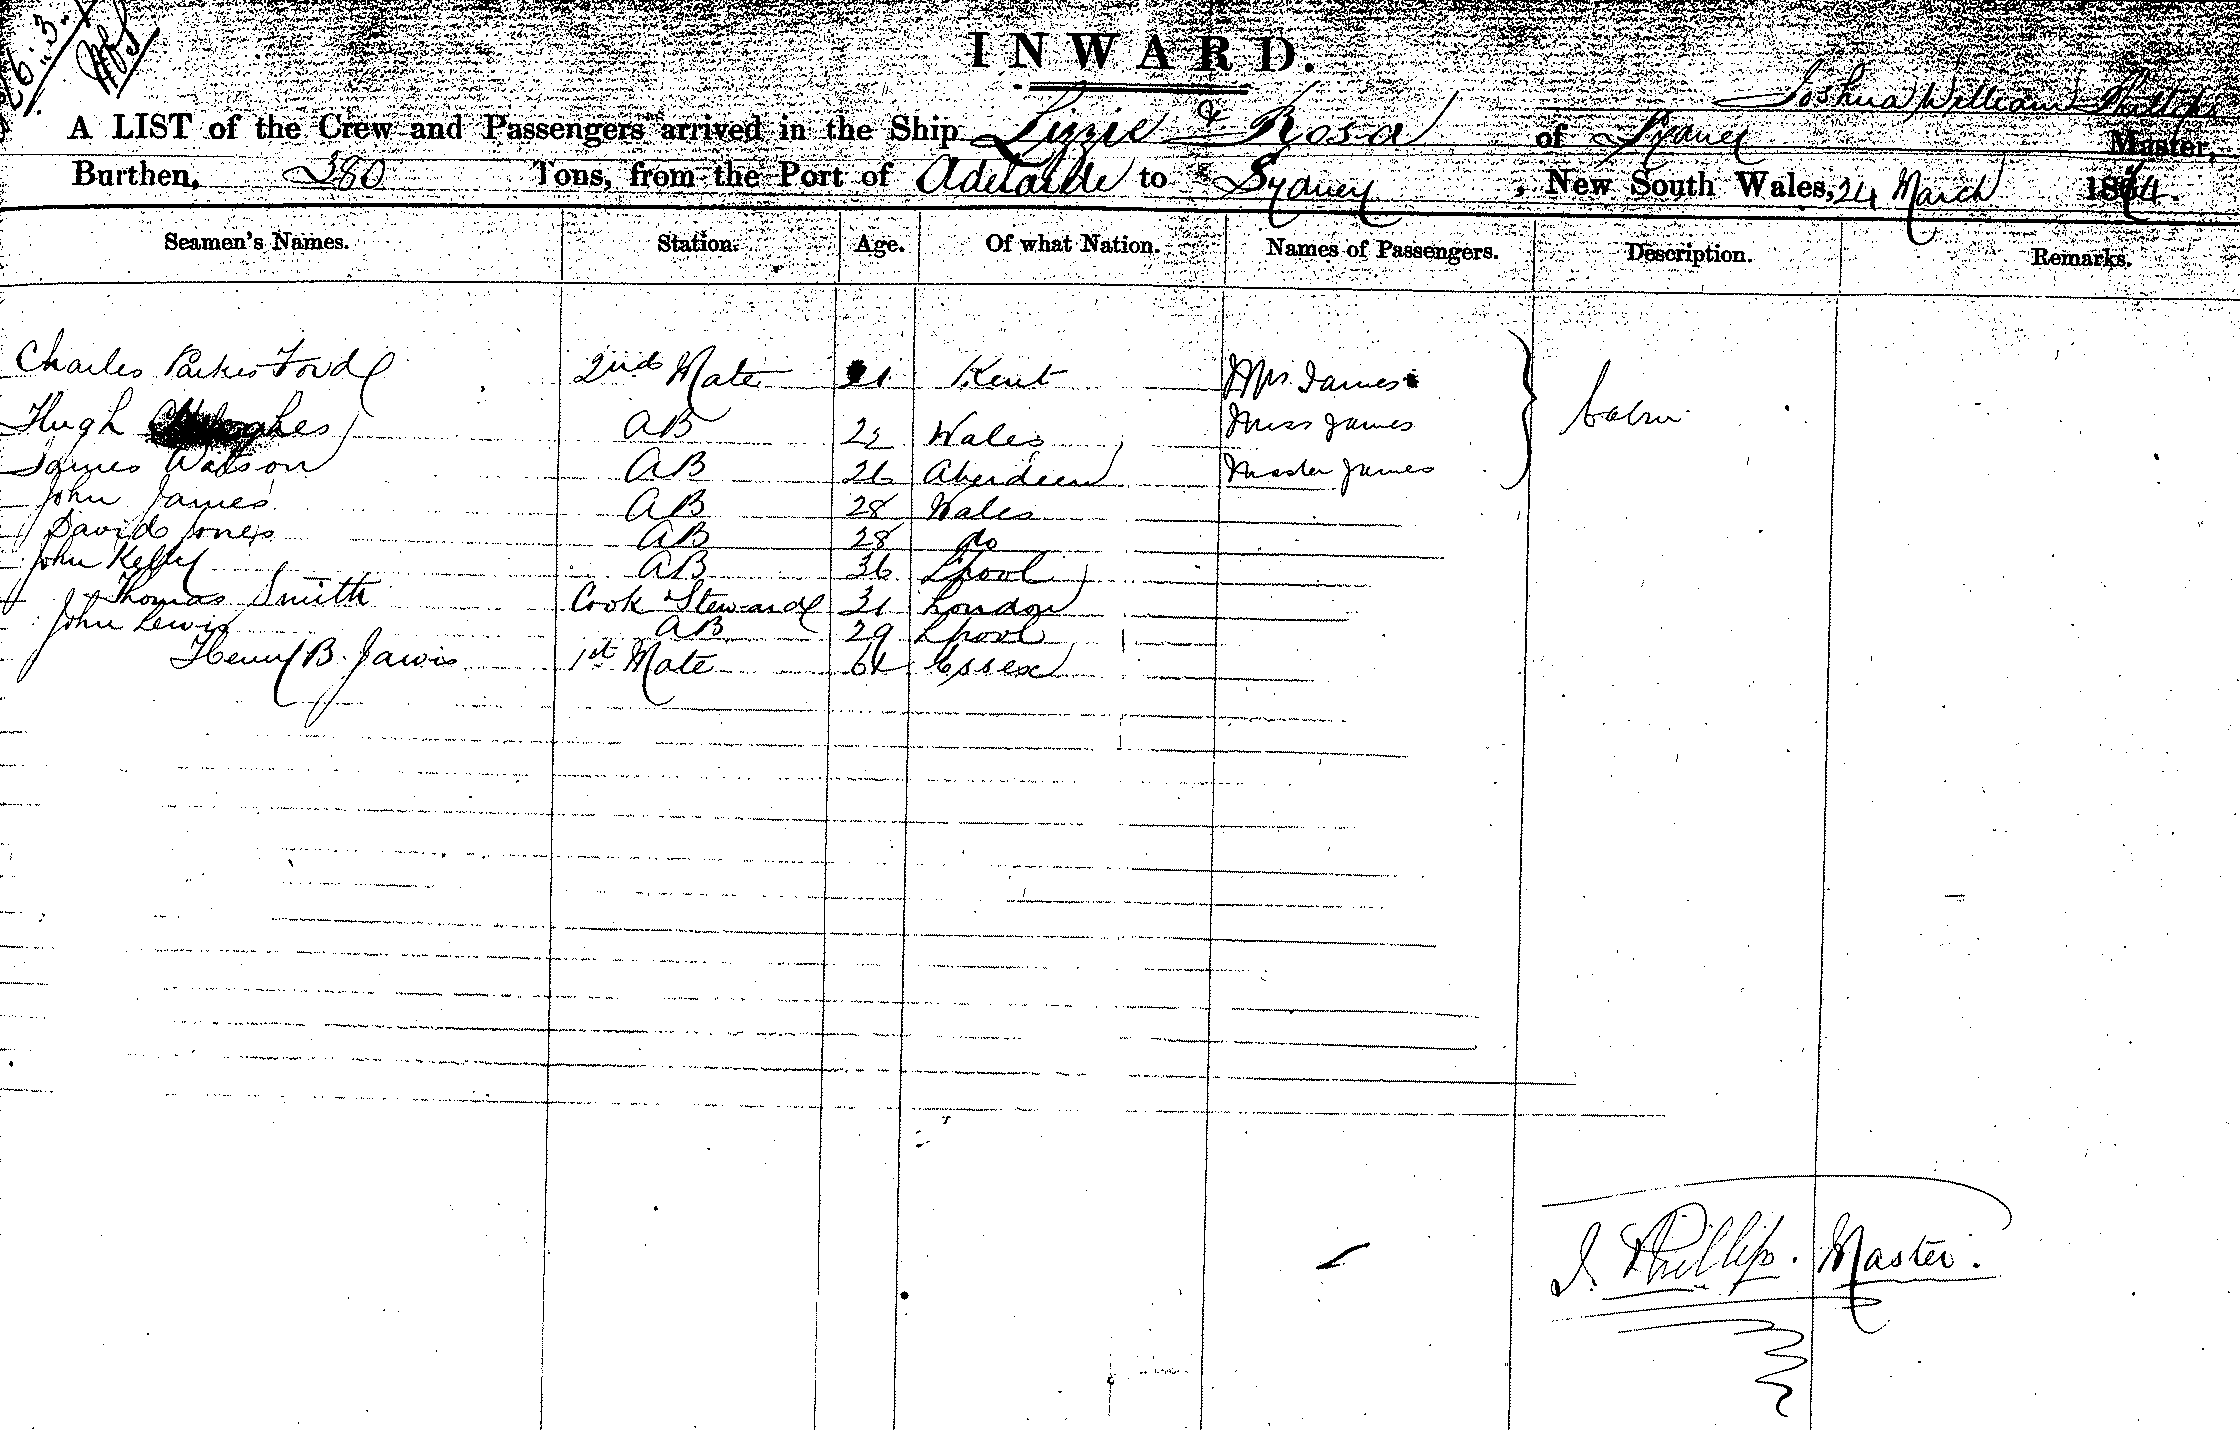 INWARD.
Joshua William Phillips
A LIST of the Crew and Passengers arrived in the Ship Lizzie & Rosa of Sydney Master,
Burthen, 380 Tons, from the Port of Adelaide to Sydney, New South Wales, 24 March 1874.
Seamen's Names. Station. Age. Of what Nation. Names of Passengers. Description. Remarks.
Charles Parkes Ford 2nd Mate 21 Kent Mrs James Cabin
Hugh Hughes AB 22 Wales Miss James
James Watson AB 26 Aberdeen Master James
John James AB 28 Wales
David Jones AB 28 do
John Kelly AB 36 Lpool
Thomas Smith Cook Steward 31 London
John Lewis AB 29 Lpool
Henry B. Jarvis 1st Mate 64 Essex
J. Phillips. Master.